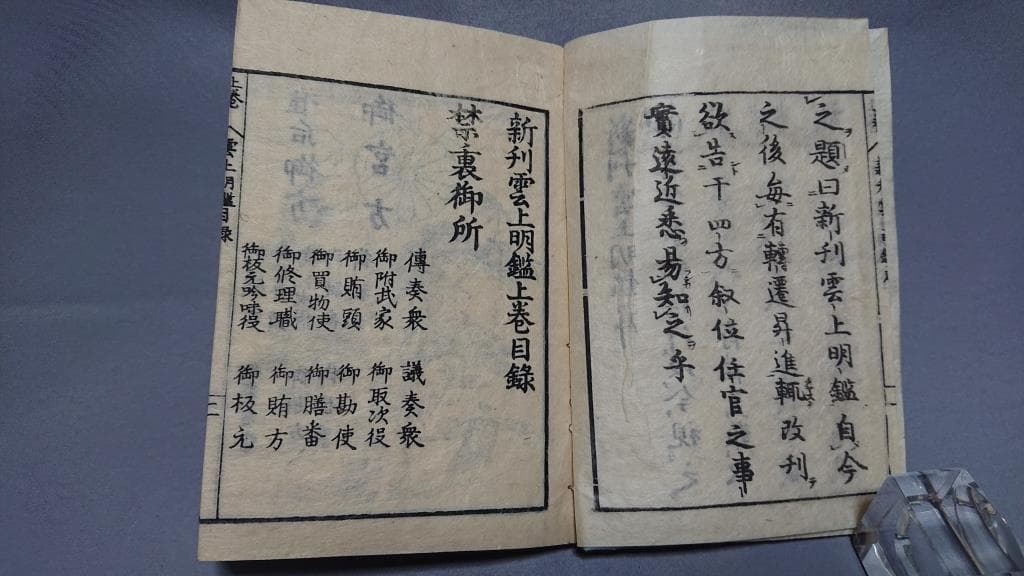 之題曰新刊雲上明鑑自今
之後毎有轉遷昇進輒改刊
欲告于四方叙位任官之事
實遠近悉易知之乎
新刊雲上明鑑上巻目録
禁裏御所
傳奏衆 議奏衆
御附武家 御取次役
御賄頭 御勘使
御買物使 御膳番
御修理職 御賄方
御板元吟味役 御板元
上巻 雲上明鑑目録 一